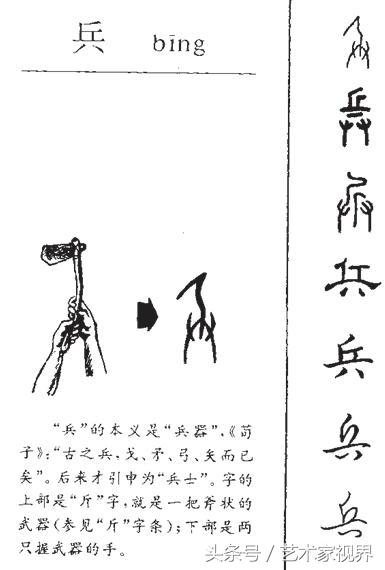 兵 bīng
“兵”的本义是“兵器”,《荀
子》:“古之兵,戈、矛、弓、矢而已
矣”。后来才引申为“兵士”。字的
上部是“斤”字,就是一把斧状的
武器(参见“斤”字条);下部是两
只握武器的手。
兵
兵
兵
兵
头条号 / 艺术家视界